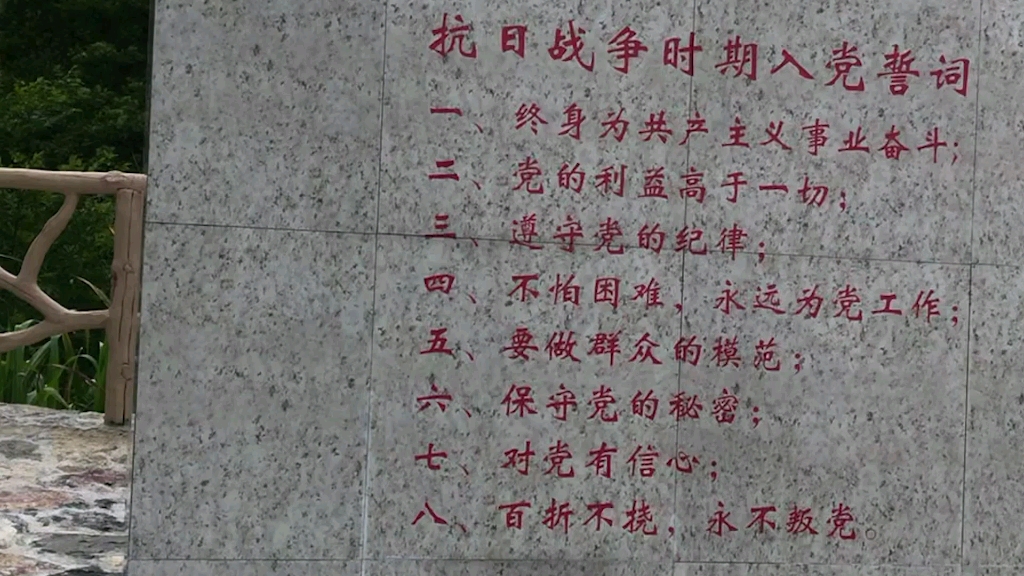 抗日战争时期入党誓词
一、终身为共产主义事业奋斗;
二、党的利益高于一切;
三、遵守党的纪律;
四、不怕困难,永远为党工作;
五、要做群众的模范;
六、保守党的秘密;
七、对党有信心;
八、百折不挠,永不叛党。